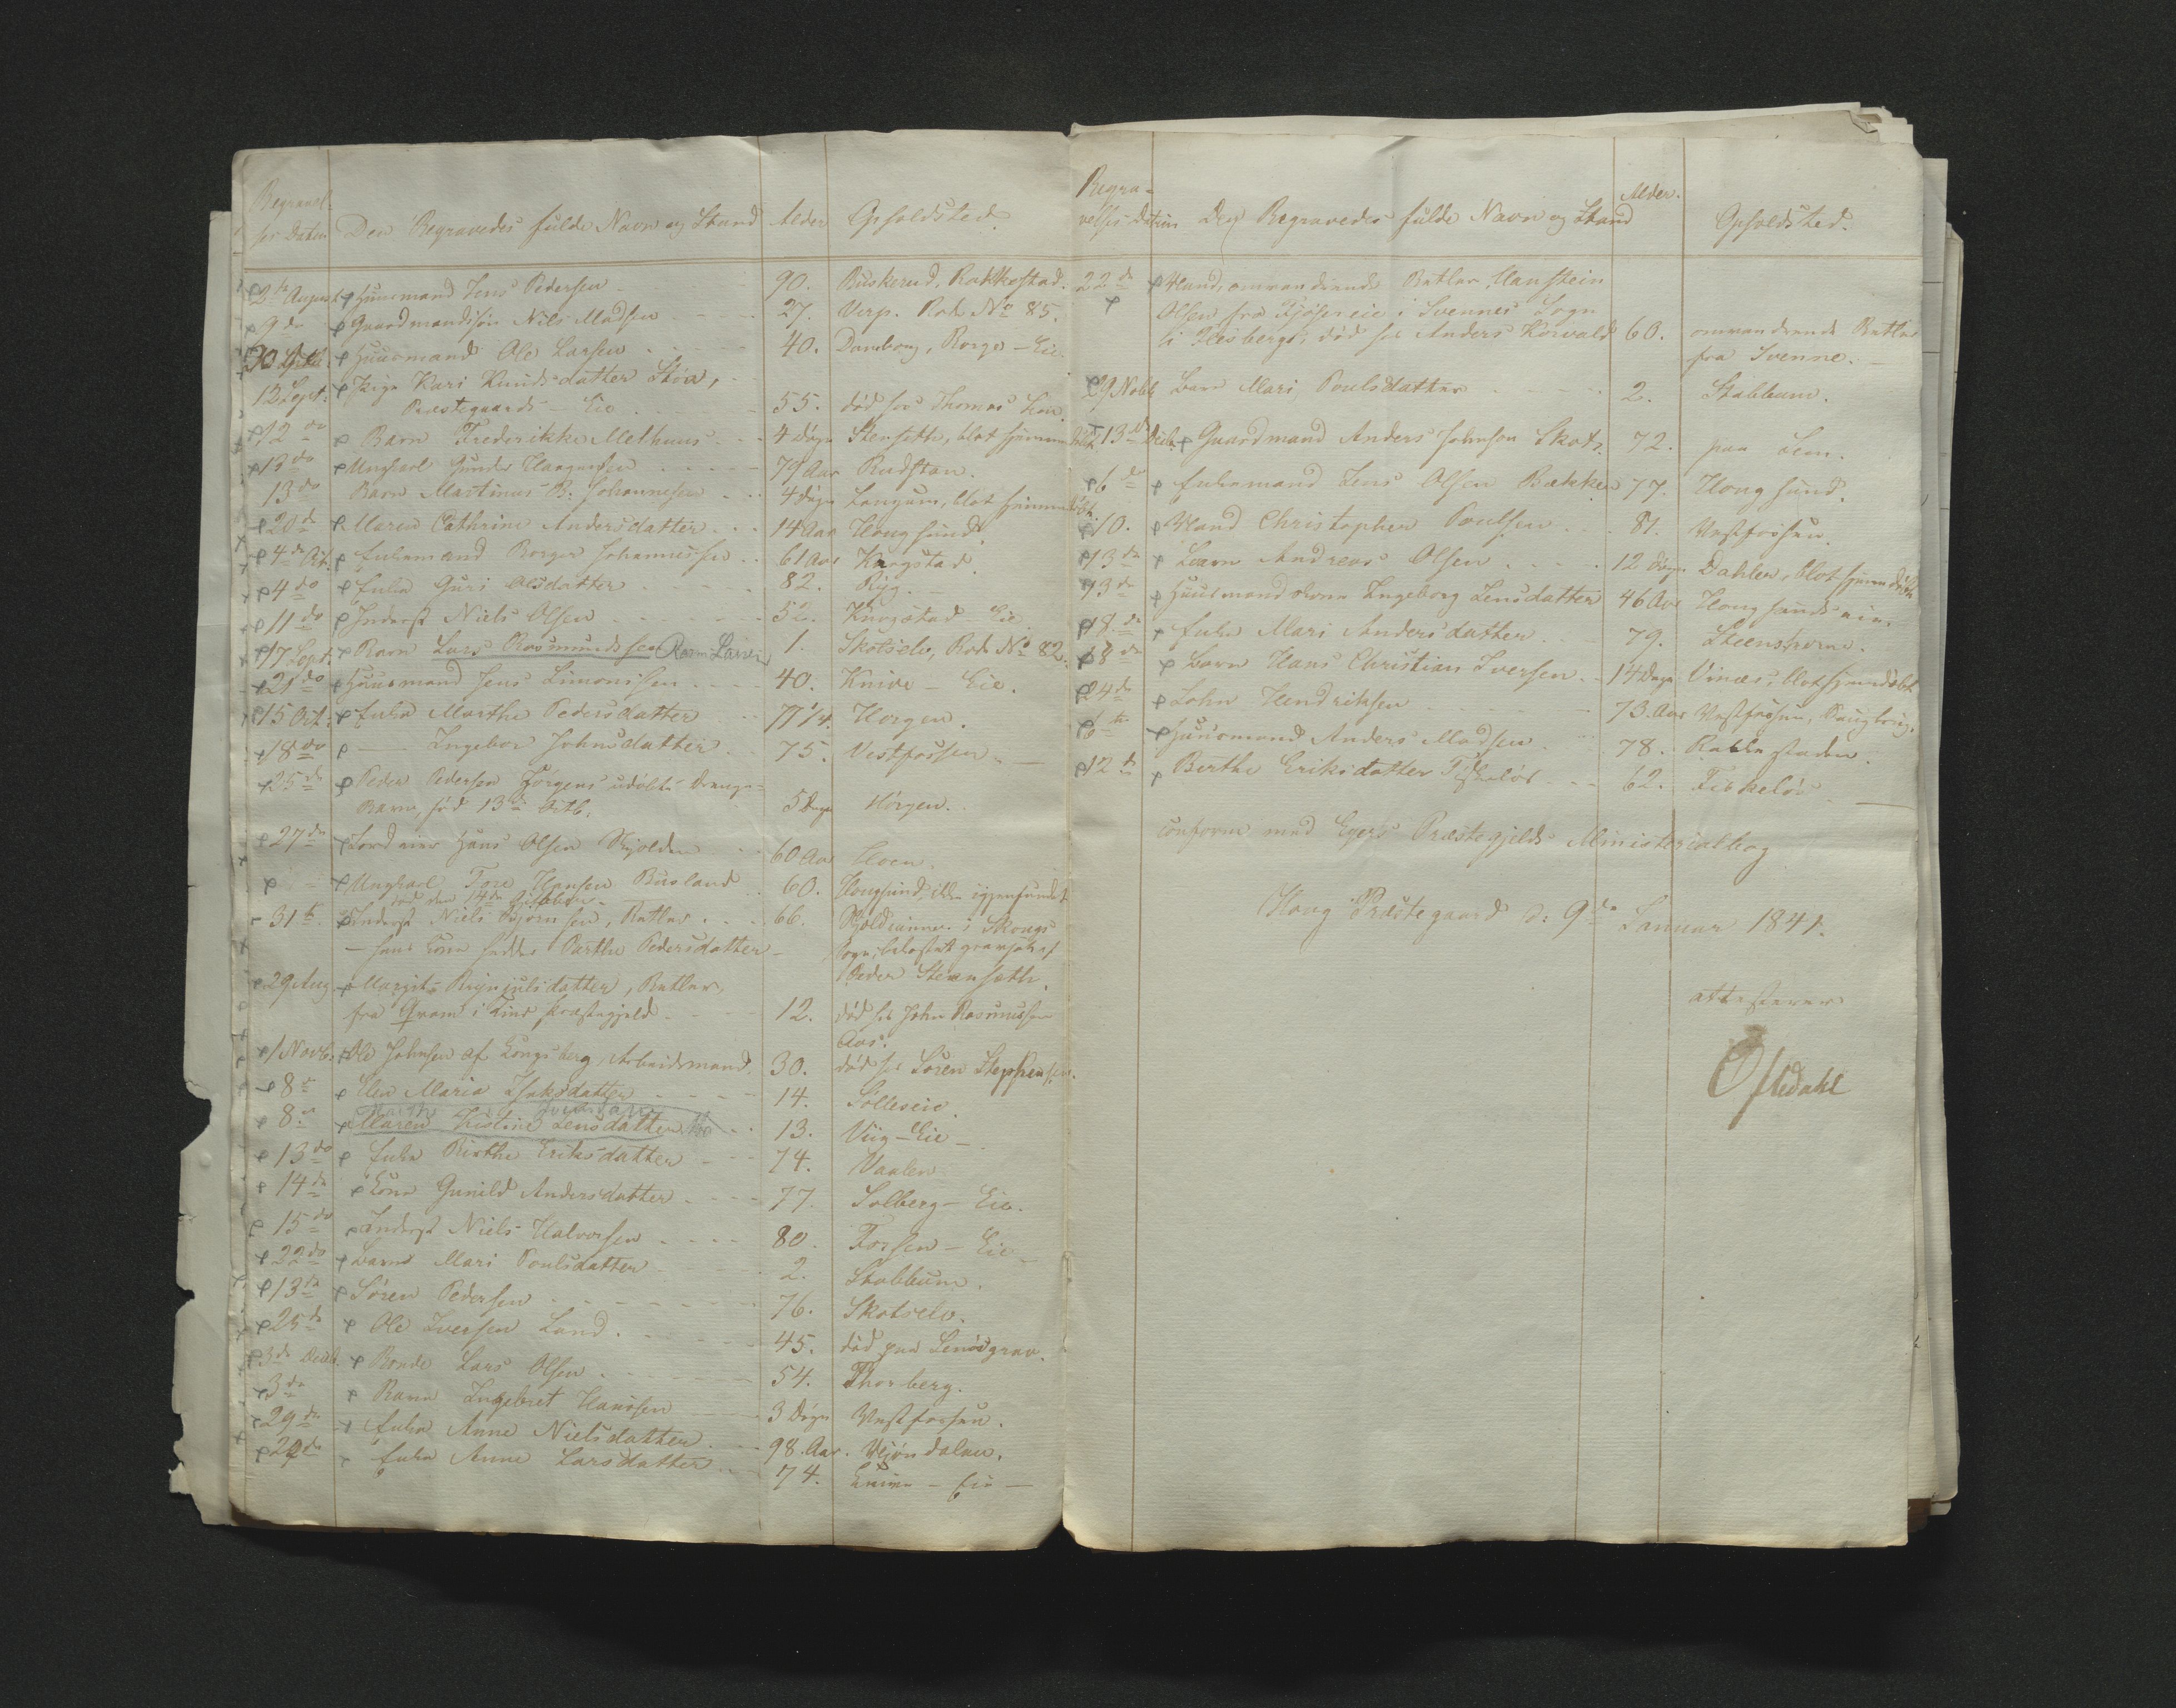 Begravel-
ses Datum Den Begravedes fulde Navn og Stand Alder Opholdsted
2de August Huusmand Jens Pedersen 90. Buskerud, Rakkestad.
9 do Gaardmandssøn Nils Madsen 27. Verp. Rode No 85.
30 Huusmand Ole Larsen 40. Damborg, Korge - Eie.
12 Sept: Pige Kari Knudsdatter Stia,
Præstegaards - Eie 55. død hos Thomas
12 do Barn Frederikke Methuus 4 Døgn Stenseth, blot hjemmedøbt.
13 do Ungkarl Gunder Haagensen 79 Aar Rudstøen.
13 do Barn Martinus B. Johannesen 4 Døgn Langum, blot hjemmedøbt.
20 de Maren Cathrine Andersdatter 14 Aar Hougsund.
4 de Oct. Enkemand Borger Johannesen 61 Aar Knogstad.
4 do Enke Guri Olsdatter 82. Ryg.
11 do Inderst Niels Olsen 52. Knogstad - Eie.
17 Sept: Barn Lars Rasmundssen 1. Skotselv, Rode No 82.
21 do Huusmand Jens Simonsen 40. Knive - Eie.
15 Oct: Enke Marthe Pedersdatter 77 1/4. Horgen.
18 do - Ingebor Johnsdatter 75. Vestfossen.
25 de Peder Pedersen Horgens udøbte Drenge-
Barn, fød 13de Octb. 5 Dage Horgen.
27 de Jordeier Hans Olsen Skjolden 60 Aar Hoen.
- Ungkarl Tore Hansen Busland 60. Hougsund, igjenfundet
død den 14de October.
31 te Inderst Niels Bjørnsen, Ratler 66. i Skougs
- hans Kone hedder Marthe Pedersdatter - Sogn, bekostet
Peder Steenseth.
29 Aug Margit Brynjulsdatter, Ratler,
fra Gram i Tinds Præstegjeld 12. død hos John Rasmussen
Aas.
1 Novb. Ole Johnsen af Kongsberg, Arbeidsmand. 30. død hos Søren Stephensen.
8 de Elen Maria Isaksdatter 14. Solleseie.
8 de Maren Kistine Jensdatter 13. Viig - Eie -
13 do Enke Birthe Eriksdatter 74. Vaalen
14 de Kone Gunild Andersdatter 77. Solberg - Eie.
15 do Inderst Niels Halvorsen 80. Fossen - Eie
22 do Barn Mari Poulsdatter 2. Stabbum.
13 de Søren Pedersen 76. Skotselv.
25 de Ole Iversen Land. 45. død paa
3 de Decb. Bonde Lars Olsen 54. Thorberg.
3 de Barn Ingebret Hansen 3 Døgn Vestfossen.
29 de Enke Anne Nielsdatter 98. Aar. Mjøndalen.
29 de Enke Anne Larsdatter 74. Knive - Eie -
Begra-
velses-Datum Den Begravedes fulde Navn og Stand Alder. Opholdsted.
22 de Mand, omvandrende Ratler, Hanstein
Olsen fra Fjøsereie i Svennes Sogn
i Flesberg, død hos Anders Korvald 60. omvandrende Ratler
fra Svenne. -
29 Novb Barn Mari Poulsdatter 2. Stabbum.
13 de Decb. Gaardmand Anders Johnsen Skots 72. paa Sem.
6 de Enkemand Jens Olsen Bækken 77. Hougsund.
10. Mand Christopher Poulsen 81. Vestfossen.
13 de Barn Andreas Olsen 12 Døgn. Dahlen, blot hjemmedøbt
13 de Huusmandskone Ingeborg Jensdatter 46 Aar Hougsundseie.
18. de Enke Mari Andersdatter 79. Steenshorne.
18 de Barn Hans Christian Iversen 14 Dage Vinæs, blot hjemmedøbt
24 de John Hendriksen 73. Aar Vestfossen, Saugbrug.
6 te Huusmand Anders Madsen 78. Rablestaden.
12 te Berthe Eriksdatter Fiskeløs 62. Fiskeløs
conform med Egers Præstegjelds Ministerialbog
Houg Præstegaard d: 9de Januar 1841.
attesterer
Oftedahl